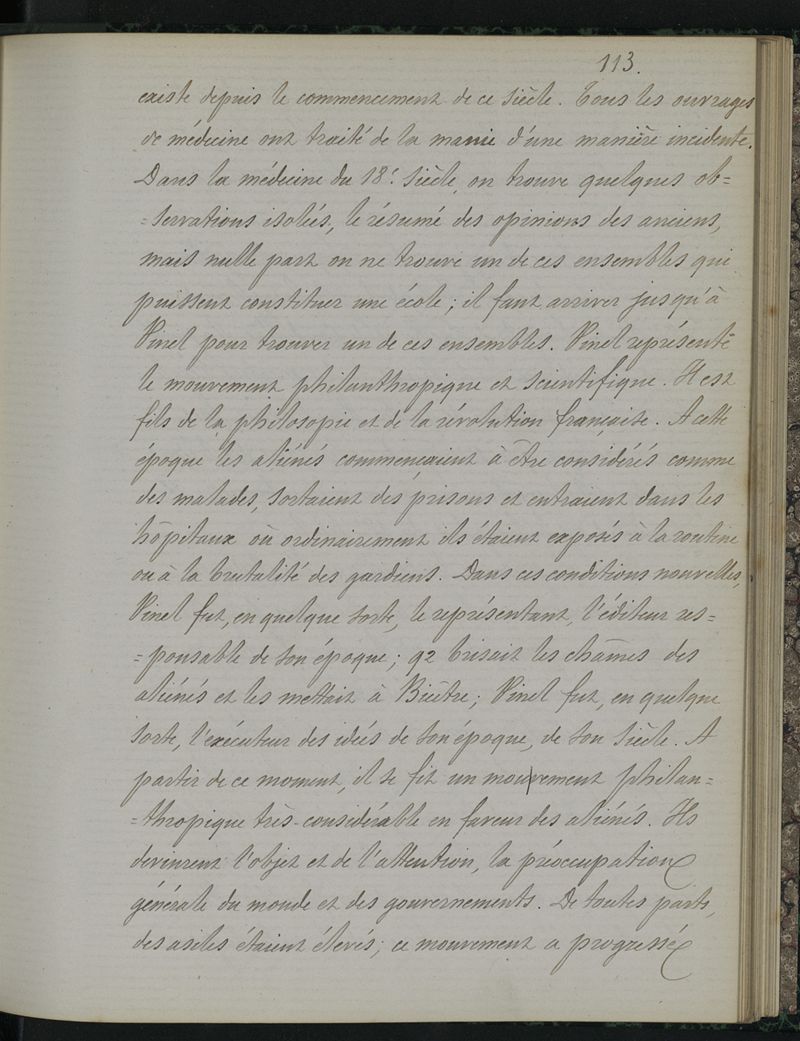 113.
existe depuis le commencement de ce siècle. Tous les ouvrages
de médecine ont traité de la manie d'une manière incidente.
Dans la médecine du 18e siècle, on trouve quelques ob=
=servations isolées, le résumé des opinions des anciens,
mais nulle part on ne trouve un de ces ensembles qui
puissent constituer une école; il faut arriver jusqu'à
Pinel pour trouver un de ces ensembles. Pinel représente
le mouvement philanthropique et scientifique. Il est
fils de la philosopie et de la révolution française. A cette
époque les aliénés commençaient à être considérés comme
des malades, sortaient des prisons et entraient dans les
hôpitaux où ordinairement ils étaient exposés à la routine
ou à la brutalité des gardiens. Dans ces conditions nouvelles,
Pinel fut, en quelque sorte, le représentant, l'éditeur res=
=ponsable de son époque; 92 brisait les chaînes des
aliénés et les mettait à Bicêtre; Pinel fut, en quelque
sorte, l'exécuteur des idées de son époque, de son siècle. A
partir de ce moment, il se fit un mouvement philan=
=thropique très-considérable en faveur des aliénés. Ils
devinrent l'objet et de l'attention, la préoccupation
générale du monde et des gouvernements. De toutes parts,
des asiles étaient élevés; ce mouvement a progressé